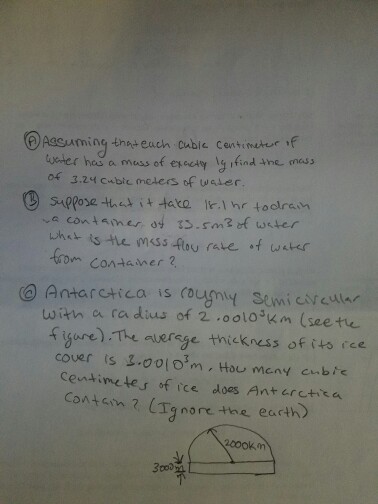 Ⓐ Assuming that each cubic centimeter of
water has a mass of exactly 1g, find the mass
of 3.24 cubic meters of water.
Ⓑ Suppose that it take 18.1 hr to drain
a container of 33.5m³ of water
what is the mass flow rate of water
from container?
Ⓒ Antarctica is roughly semicircular
with a radius of 2.0010³km (see the
figure). The average thickness of its ice
cover is 3.0010³m. How many cubic
centimeters of ice does Antarctica
contain? (Ignore the earth)
2000km
3000m